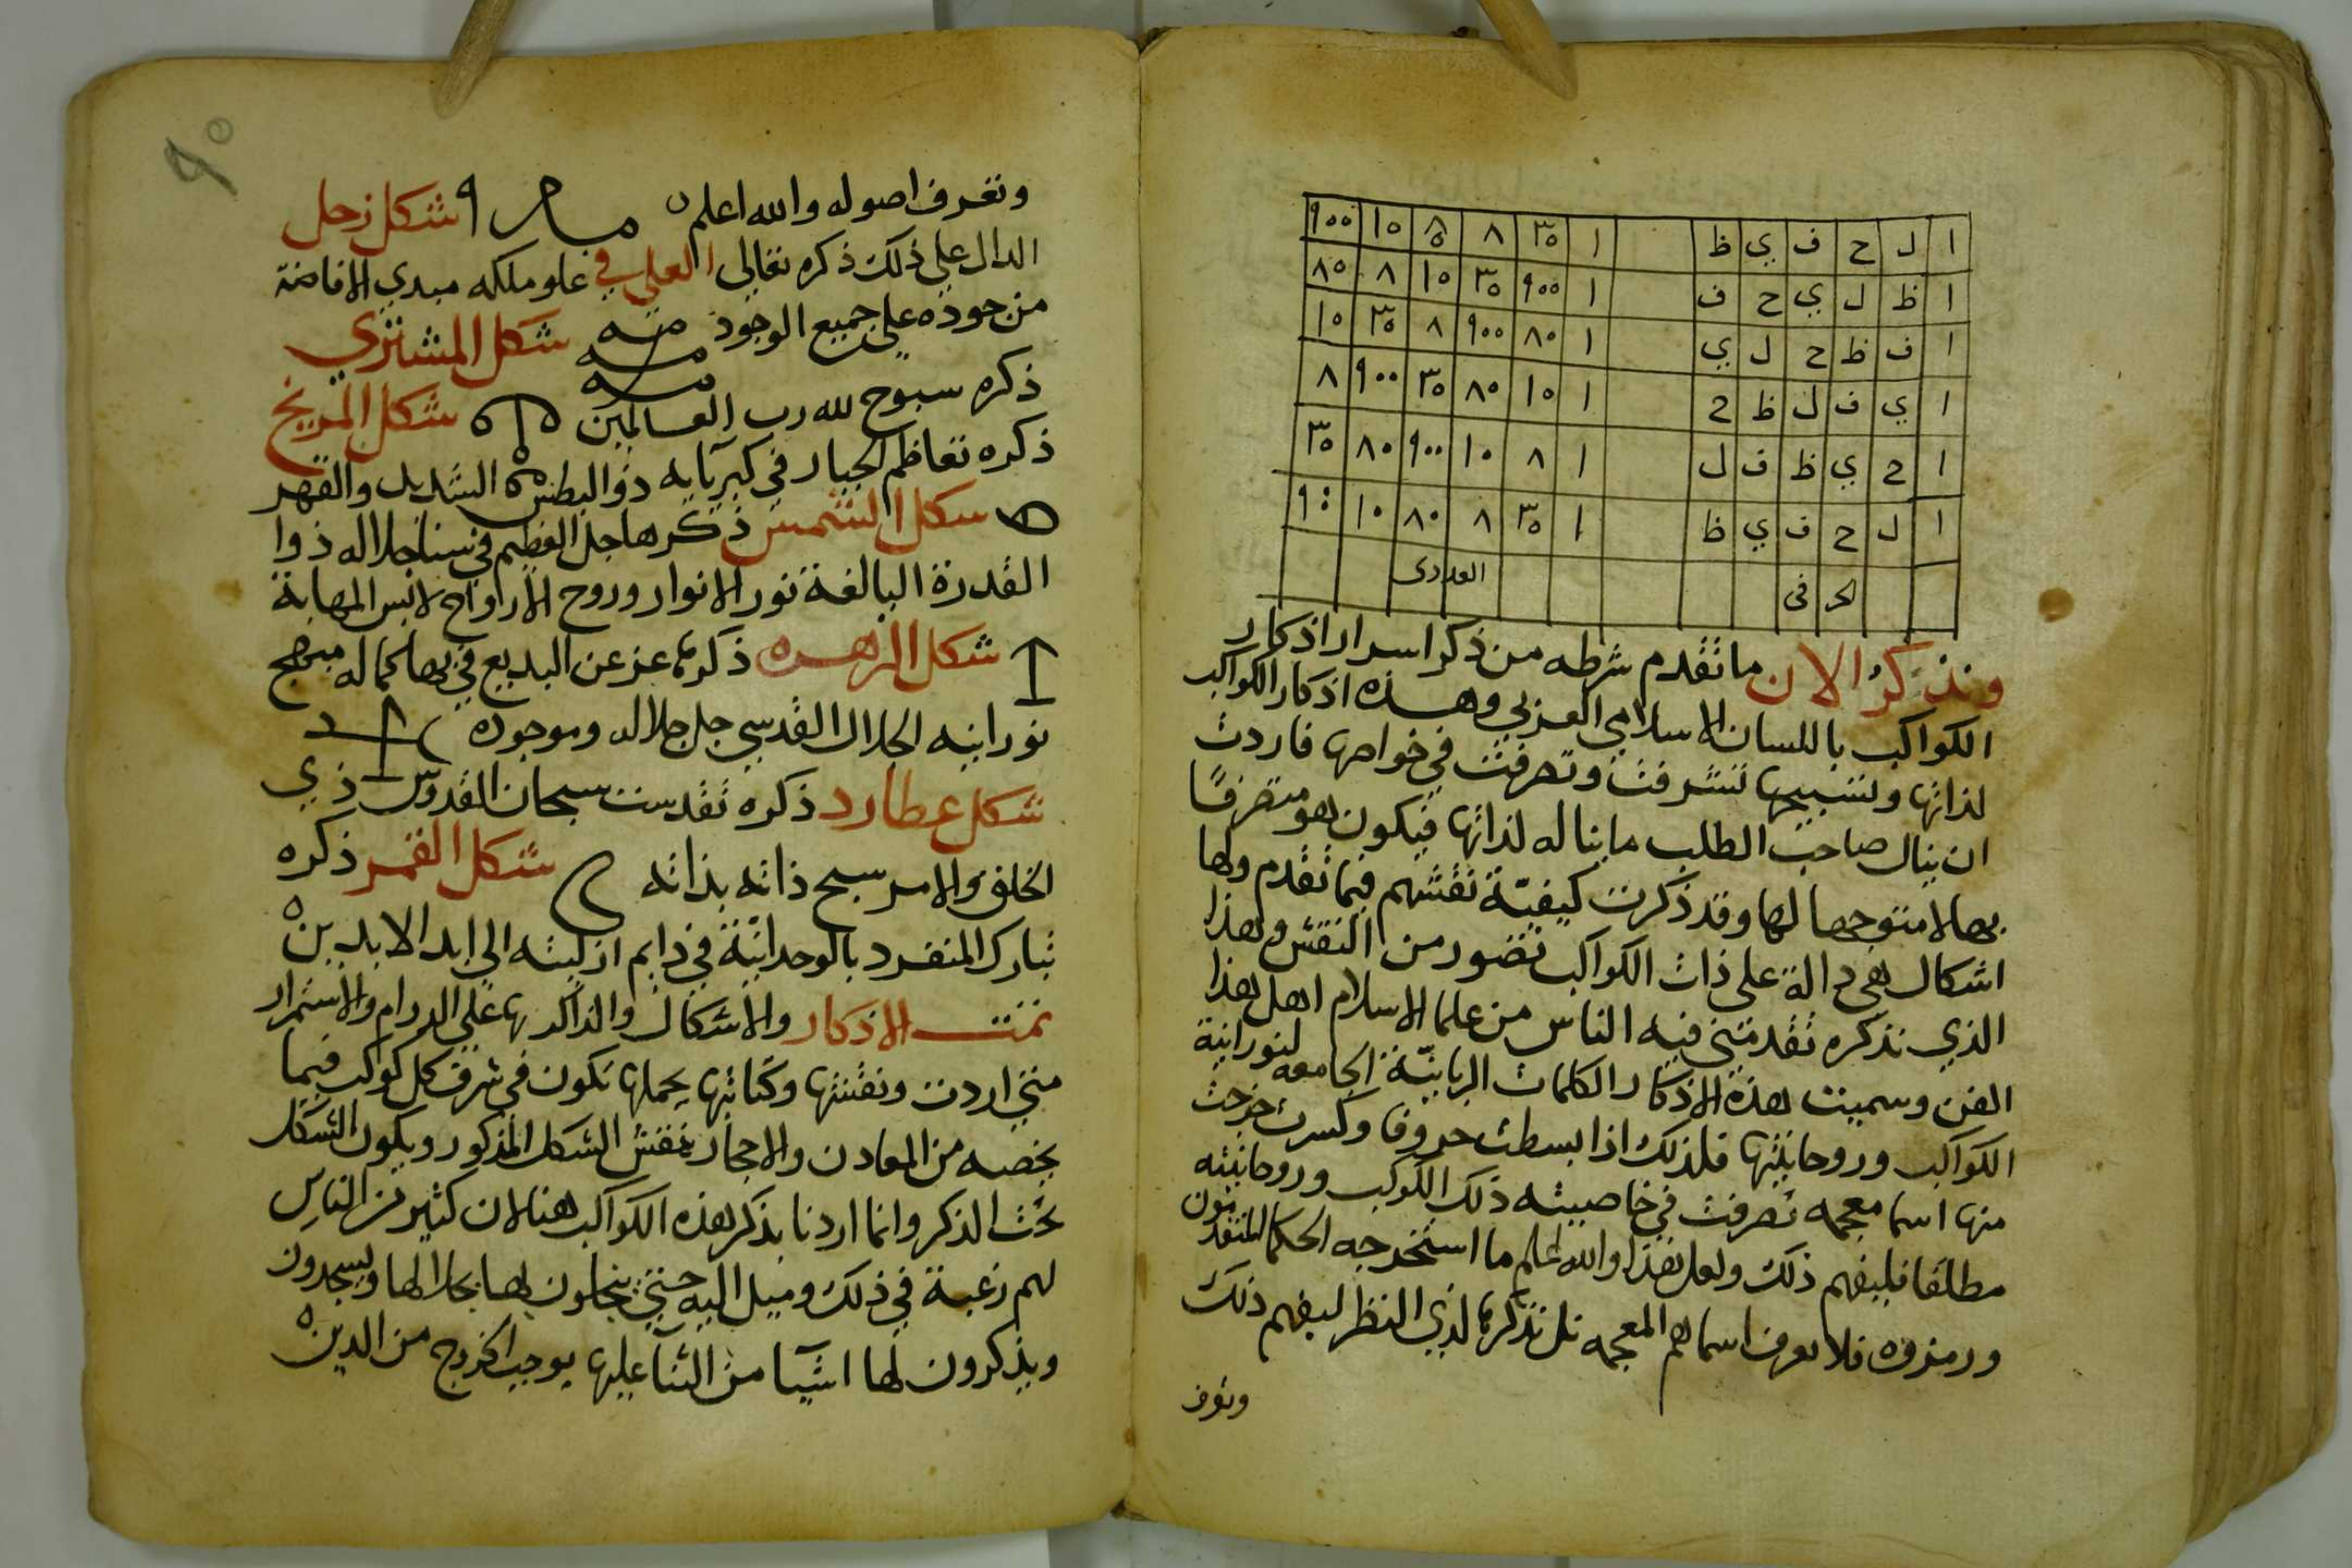 ا ل ح ف ي ظ ا ٣٠ ٨ ٨٠ ١٠ ٩٠٠
ا ظ ل ي ح ف ا ٩٠٠ ٣٠ ١٠ ٨ ٨٠
ا ف ظ ح ل ي ا ٨٠ ٩٠٠ ٨ ٣٠ ١٠
ا ي ف ل ظ ح ا ١٠ ٨٠ ٣٠ ٩٠٠ ٨
ا ح ي ظ ف ل ا ٨ ١٠ ٩٠٠ ٨٠ ٣٠
ا ل ح ف ي ظ ا ٣٠ ٨ ٨٠ ١٠ ٩٠٠
الحرفى العددى
ونذكر الان ما تقدم شرطه من ذكر اسرار اذكار
الكواكب باللسان الاسلامي العربي وهذه اذكار الكواكب
لذاتها وتسبيحها تشرفت وتصرفت في خواصها فاردت
ان ينال صاحب الطلب ما يناله لذاتها فيكون هو متصرفًا
بها لا متوجها لها وقد ذكرت كيفيّة نقشهم فيما تقدم ولها
اشكال هي دالة على ذات الكواكب تصور من النقش وهذا
الذي نذكره تقدمتني فيه الناس من علما الاسلام اهل هذا
الفن وسميت هذه الاذكار الكلمات الربانيّة الجامعه لنورانية
الكواكب وروحانيتها فلذلك اذا بسطت حروفا وكسرت خرجت
منها اسما معجمه تصرفت في خاصيته ذلك الكوكب وروحانيته
مطلقا فليفهم ذلك ولعل هذا والله اعلم ما استخرجه الحكما المتقدمون
ورمزوه فلا تعرف اسماهم المعجمه بل تذكرها لذي النظر ليفهم ذلك
وتعرف
٩٠
وتعرف اصوله والله اعلم شكل زحل
الدال علي ذلك ذكره تعالي العلي في علو ملكه مبدي الافاضة
من جوده علي جميع الوجود شكل المشتري
ذكره سبوح لله رب العالمين شكل المريخ
ذكره تعاظم الجبار في كبريآيه ذو البطش الشديد والقهر
شكل الشمس ذكرها جل العظيم في سنا جلاله ذوا
القدرة البالغة نور الانوار وروح الارواح لابس المهابة
شكل الزهره ذكرها عز عن البديع في بها كماله مبهج
نورانيه الجلال القدسي جل جلاله وموجوده
شكل عطارد ذكره تقدست سبحان القدوس ذي
الخلق والامر سبح ذاته بذاته شكل القمر ذكره
تبارك المنفرد بالوحدانيّة في دايم ازليته الي ابد الابدين
تمت الاذكار والاشكال والذاكر بها علي الدوام والاستمرار
متي اردت ونقشتها وكتابتها يحملها تكون في شرف كل كوكب فيما
يخصه من المعادن والاحجار نقش الشكل المذكور ويكون الشكل
تحت الذكر وانما اردنا بذكر هذه الكواكب هنا لان كثير من الناس
لهم رغبة في ذلك وميل اليه حتي ويسجدون
ويذكرون لها اشيا من الثنا عليها يوجب الخروج من الدين